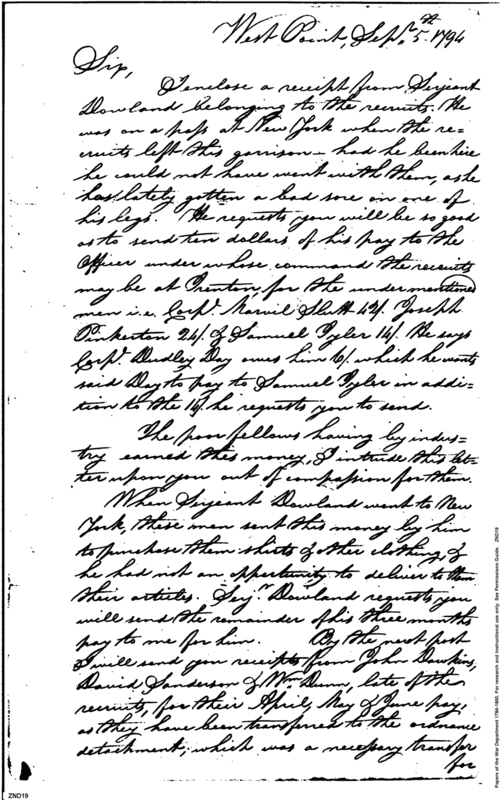 West Point, Sepr. 5th. 1794
Sir,
I enclose a receipt from Serjeant
Dowland belonging to the recruits. He
was on a pass at New York when the re=
cruits left this garrison — had he been here
he could not have went with them, as he
has lately gotten a bad sore on one of
his legs. He requests you will be so good
as to send ten dollars of his pay to the
Officer under whose command the recruits
may be at Trenton, for the undermentioned
men i.e. Corpl. Marvil Slutt 42/. Joseph
Pinkerton 24/. & Samuel Tyler 14/. He says
Corpl. Dudley Day owes him 6/. which he wants
said Day to pay to Samuel Tyler in addi=
tion to the 14/. he requests you to send.
The poor fellows having by indus=
try earned this money, I intrude this let=
ter upon you out of compassion for them.
When Serjeant Dowland went to New
York, these men sent this money by him
to purchase them shirts & other clothing, &
he had not an opportunity to deliver to them
their articles. Serjt. Dowland requests you
will send the remainder of his three months
pay to me for him. By the next post
I will send you receipts from John Dawkins,
David Sanderson & Wm. Dunn, late of the
recruits, for their April, May & June pay,
as they have been transferred to the ordnance
detachment; which was a necessary transfer
for
ZND19
Papers of the War Department 1784-1800. For research and instructional use only. See Permissions Guide. ZND19